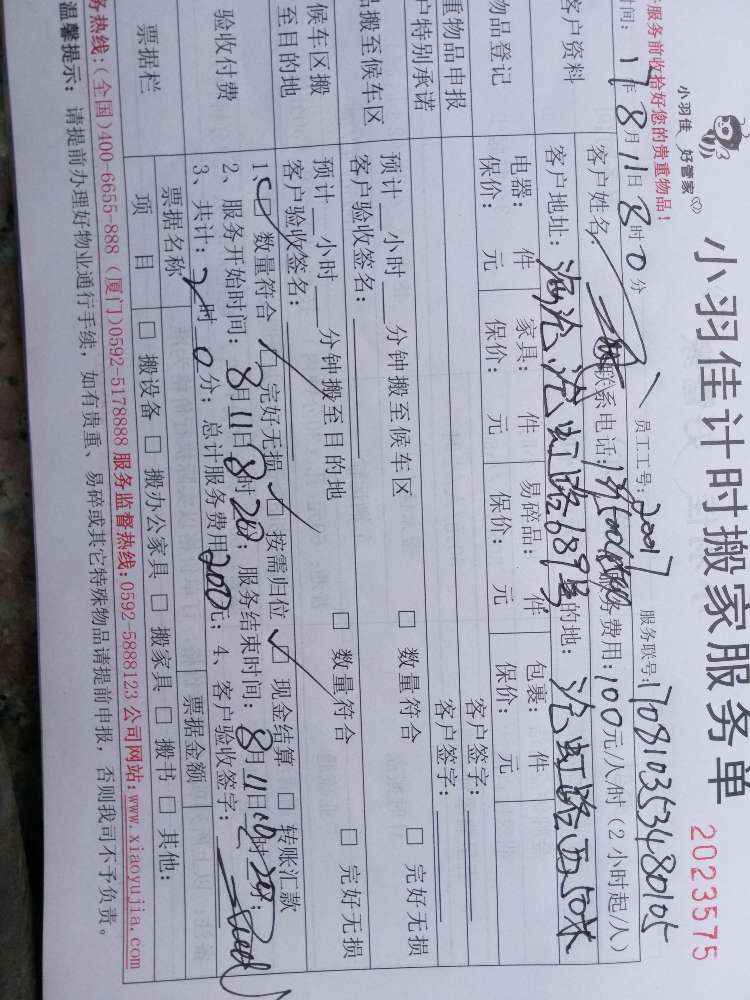 小羽佳 好管家
小羽佳计时搬家服务单
2023575
服务前收拾好您的贵重物品!
时间: 17年8月11日8时0分 员工工号: 20017 服务联号: 170810353480105
客户资料
客户姓名: 联系电话: 服务费用: 100元/人/时 (2小时起/人)
客户地址: 海沧、沧虹路689号 的地: 沧虹路西50米
物品登记
电器: 件 家具: 件 易碎品: 件 包裹: 件
保价: 元 保价: 元 保价: 元 保价: 元
重物品申报 客户签字:
户特别承诺 客户签字:
搬至候车区
预计__小时__分钟搬至候车区 □ 数量符合 □ 完好无损
客户验收签名:
候车区搬
至目的地
预计__小时__分钟搬至目的地 □ 数量符合 □ 完好无损
客户验收签名:
验收付费
1、□ 数量符合 □ 完好无损 □ 按需归位 □ 现金结算 □ 转账汇款
2、服务开始时间: 8月11日8时20分; 服务结束时间: 8月11日10时20分;
3、共计: 2时0分; 总计服务费用200元; 4、客户验收签字:
票据栏
票据名称 票据金额
项 目 □ 搬设备 □ 搬办公家具 □ 搬家具 □ 搬书 □ 其他:
务热线:(全国)400-6655-888 (厦门)0592-5178888 服务监督热线:0592-5888123 公司网站:www.xiaoyujia.com
温馨提示: 请提前办理好物业通行手续, 如有贵重、易碎或其它特殊物品请提前申报, 否则我司不予负责。